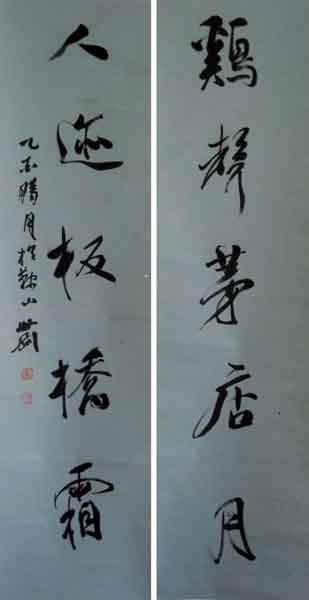 鷄聲茅店月
人迹板橋霜
乙酉腊月於鞍山